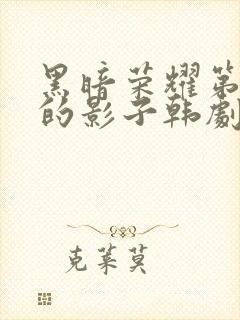 黑暗荣耀第
的影子韩劇
克莱莫